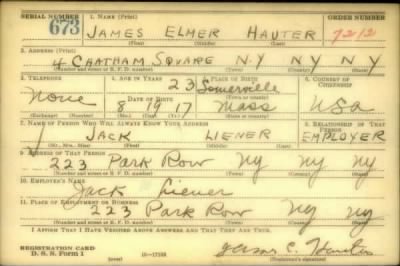 SERIAL NUMBER 1. NAME (Print) ORDER NUMBER
673 JAMES ELMER HAUTER 7212
(First) (Middle) (Last)
2. ADDRESS (Print)
4 CHATHAM SQUARE N.Y N.Y N.Y
(Number and street or R. F. D. number) (Town) (County) (State)
3. TELEPHONE 4. AGE IN YEARS 5. PLACE OF BIRTH 6. COUNTRY OF CITIZENSHIP
23 Somerville
None DATE OF BIRTH (Town or county)
8 19 17 Mass USA
(Exchange) (Number) (Mo.) (Day) (Yr.) (State or country)
7. NAME OF PERSON WHO WILL ALWAYS KNOW YOUR ADDRESS 8. RELATIONSHIP OF THAT PERSON
JACK LIENER EMPLOYER
9. ADDRESS OF THAT PERSON
223 Park Row Ny Ny Ny
(Number and street or R. F. D. number) (Town) (County) (State)
10. EMPLOYER'S NAME
Jack Liener
11. PLACE OF EMPLOYMENT OR BUSINESS
223 Park Row Ny Ny
(Number and street or R. F. D. number) (Town) (County) (State)
I AFFIRM THAT I HAVE VERIFIED ABOVE ANSWERS AND THAT THEY ARE TRUE.
REGISTRATION CARD
D. S. S. Form 1 (over) 16—17105
(Registrant's signature)